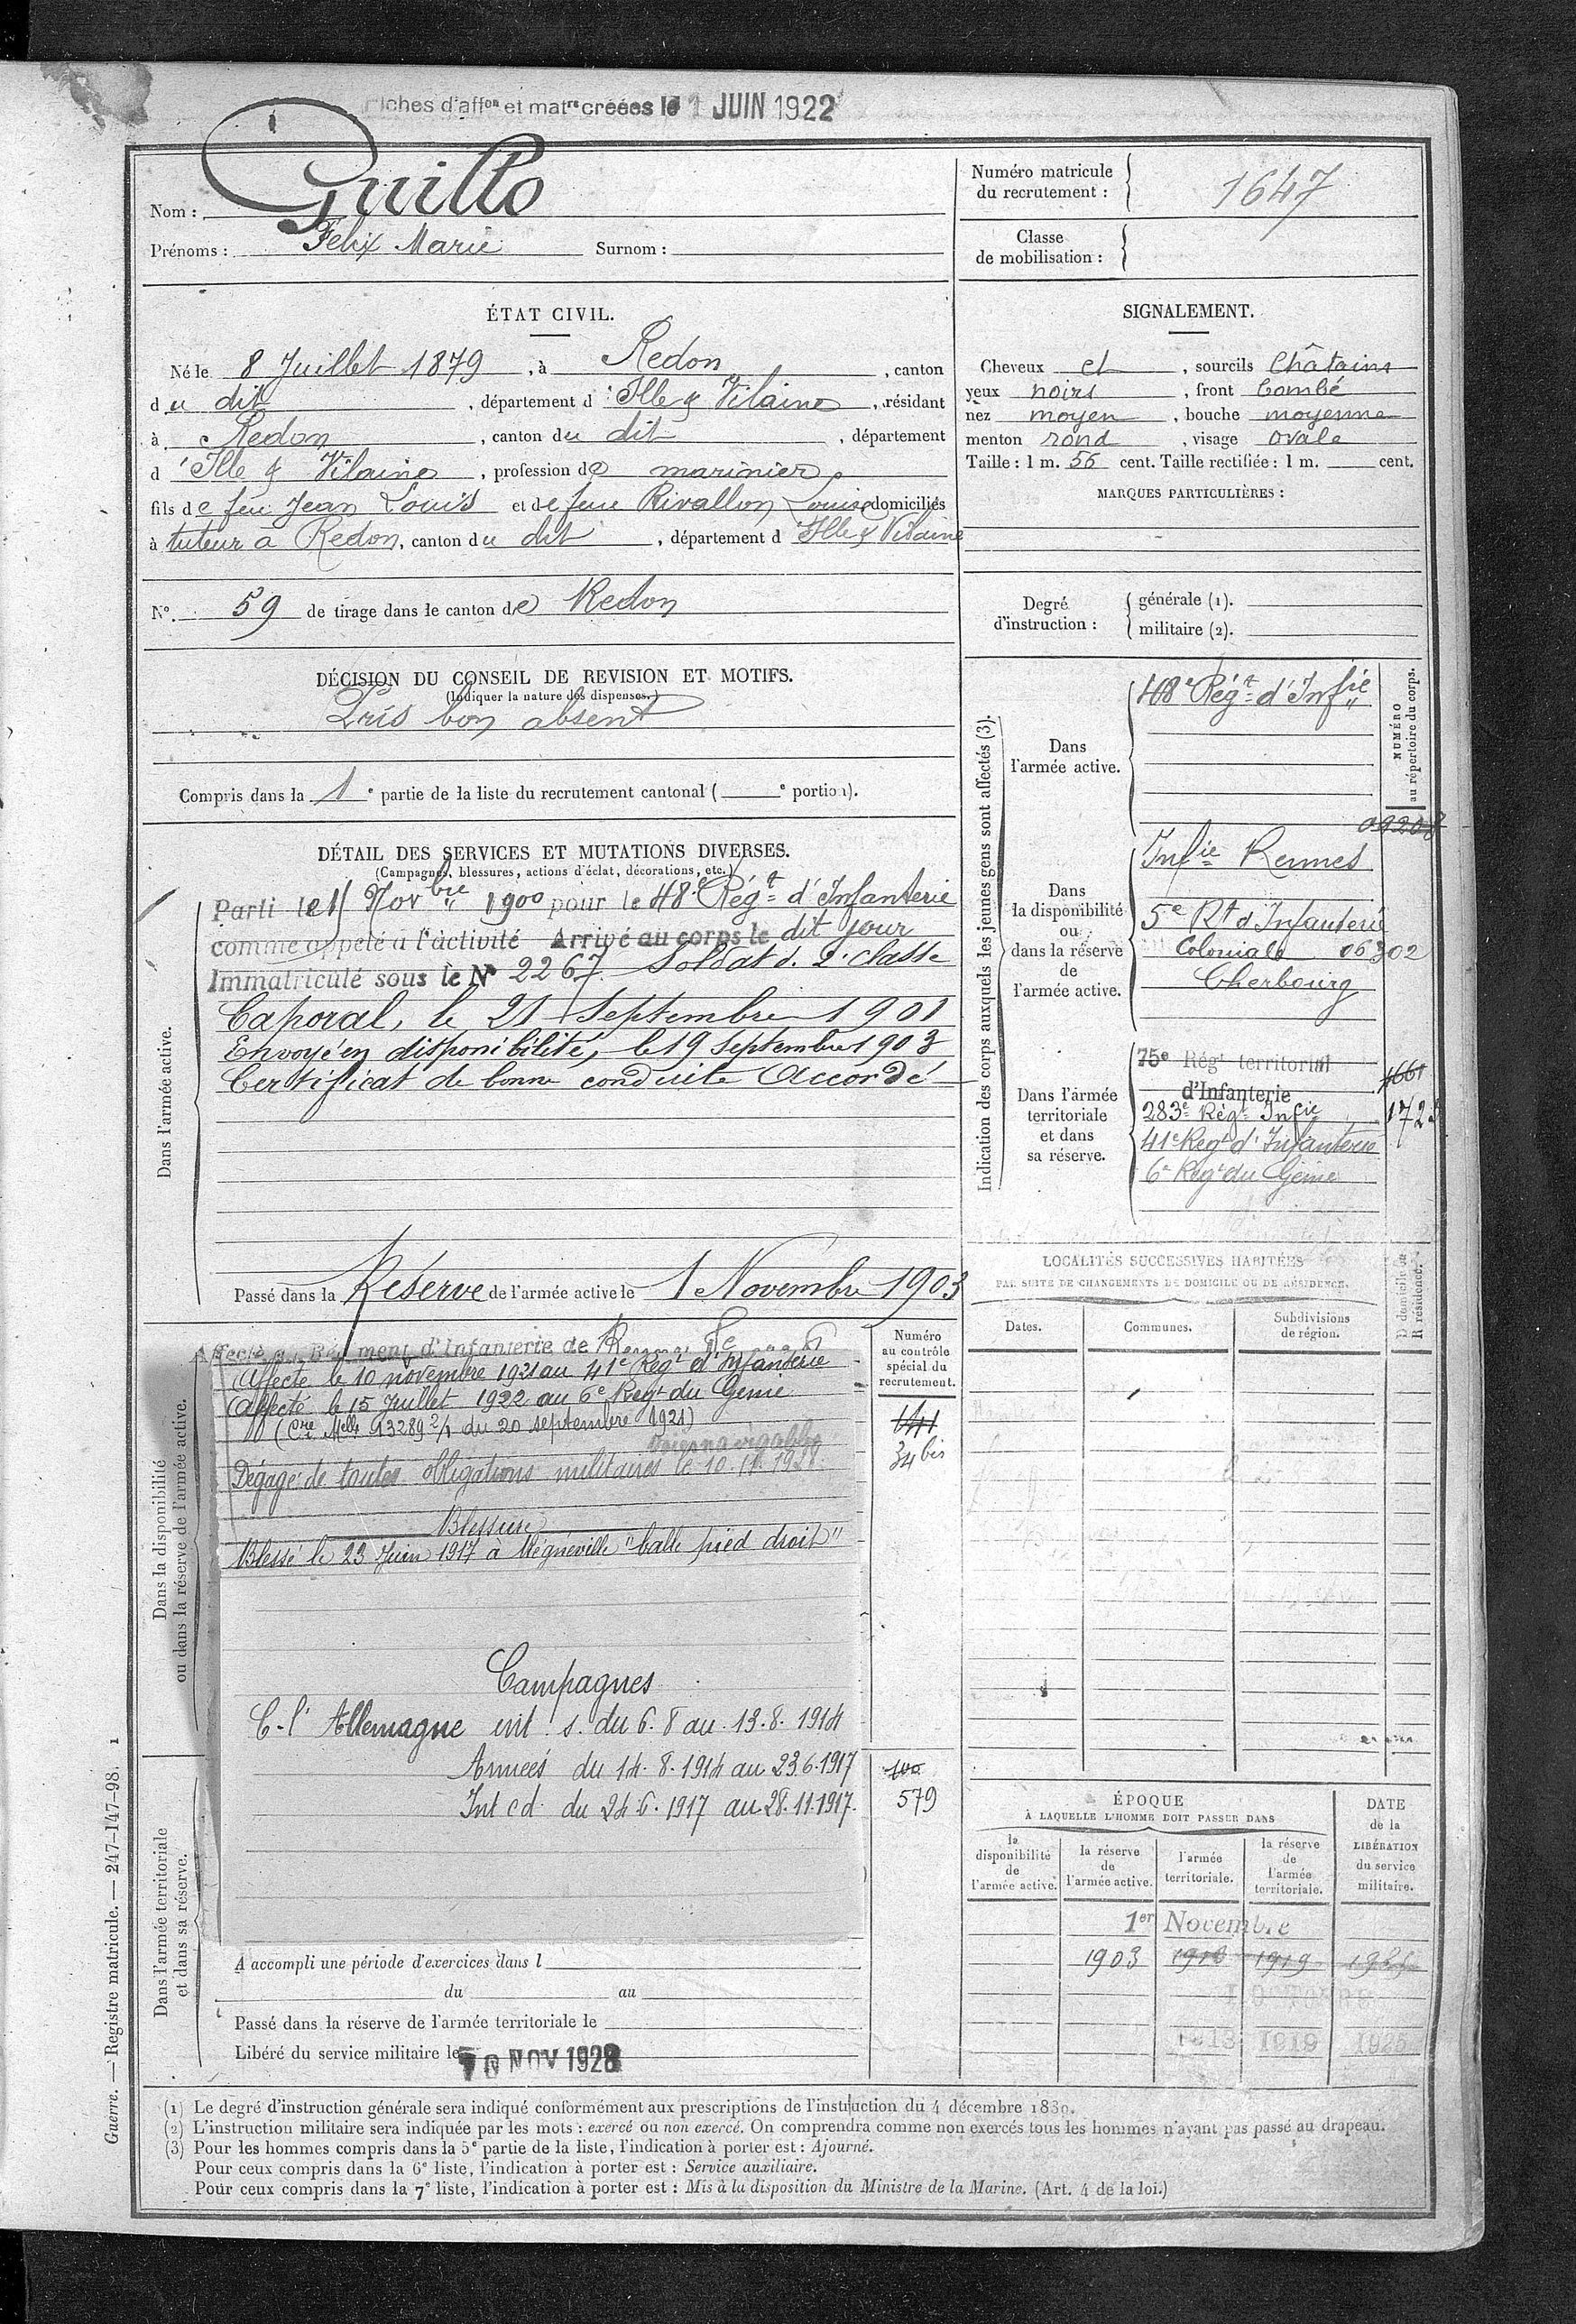 Fiches d'affon et matre créées le 1 JUIN 1922
Nom : Guillo
Prénoms : Felix Marie Surnom :
Numéro matricule du recrutement : 1647
Classe de mobilisation :
ÉTAT CIVIL.
Né le 8 Juillet 1879, à Redon, canton
du dit, département d'Ille & Vilaine, résidant
à Redon, canton du dit, département
d'Ille & Vilaine, profession de marinier
fils de feu Jean Louis et de feue Rivallon Louise domiciliés
à tuteur à Redon, canton du dit, département d'Ille & Vilaine
N° 59 de tirage dans le canton de Redon
SIGNALEMENT.
Cheveux et, sourcils Châtains
yeux noirs, front bombé
nez moyen, bouche moyenne
menton rond, visage ovale
Taille : 1 m. 56 cent. Taille rectifiée : 1 m. cent.
MARQUES PARTICULIÈRES :
Degré d'instruction :
générale (1).
militaire (2).
DÉCISION DU CONSEIL DE REVISION ET MOTIFS.
(Indiquer la nature des dispenses.)
Pris bon absent
Compris dans la 1e partie de la liste du recrutement cantonal ( e portion).
DÉTAIL DES SERVICES ET MUTATIONS DIVERSES.
(Campagnes, blessures, actions d'éclat, décorations, etc.)
Dans l'armée active.
Parti le Novbre 1900 pour le 48e Régt d'Infanterie
comme appelé à l'activité Arrivé au corps le dit jour
Immatriculé sous le N° 2267 Soldat d. 2e classe
Caporal, le 21 Septembre 1901
Envoyé en disponibilité, le 19 Septembre 1903
Certificat de bonne conduite Accordé
Passé dans la Réserve de l'armée active le 1 Novembre 1903
Indication des corps auxquels les jeunes gens sont affectés (3).
NUMÉRO au répertoire du corps.
Dans l'armée active.
48e Régt d'Infie
Dans la disponibilité ou dans la réserve de l'armée active.
Infie Rennes
5e Rt d'Infanterie
Coloniale 06302
Cherbourg
Dans l'armée territoriale et dans sa réserve.
75e Régt territorial
d'Infanterie
283e Régt Infie
41e Regt d'Infanterie
6e Regt du Génie
LOCALITÉS SUCCESSIVES HABITÉES
PAR SUITE DE CHANGEMENTS DE DOMICILE OU DE RÉSIDENCE.
D domicile ou R résidence.
Dates. Communes. Subdivisions de région.
Dans la disponibilité ou dans la réserve de l'armée active.
Numéro au contrôle spécial du recrutement.
141
34 bis
Affecté au Régiment d'Infanterie de
Affecté le 10 novembre 1921 au 41e Regt d'Infanterie
Affecté le 15 Juillet 1922 au 6e Regt du Génie
(Cre Melle 13289 2/1 du 20 septembre 1921)
Dégagé de toutes obligations militaires le 10.11.1928
Blessure
Blessé le 23 Juin 1917 à "balle pied droit"
Campagnes
C. l'Allemagne int. s. du 6.8 au 13.8.1914
Armées du 14.8.1914 au 23.6.1917
Int cd du 24.6.1917 au 28.11.1917.
Dans l'armée territoriale et dans sa réserve.
579
A accompli une période d'exercices dans l
du au
Passé dans la réserve de l'armée territoriale le
Libéré du service militaire le 10 NOV 1928
ÉPOQUE
À LAQUELLE L'HOMME DOIT PASSER DANS
la disponibilité de l'armée active.
la réserve de l'armée active.
l'armée territoriale.
la réserve de l'armée territoriale.
DATE de la LIBÉRATION du service militaire.
1er Novembre
1903 1919
1913 1919 1925
Guerre. — Registre matricule. — 247-147-98. 1
(1) Le degré d'instruction générale sera indiqué conformément aux prescriptions de l'instruction du 4 décembre 1889.
(2) L'instruction militaire sera indiquée par les mots : exercé ou non exercé. On comprendra comme non exercés tous les hommes n'ayant pas passé au drapeau.
(3) Pour les hommes compris dans la 5e partie de la liste, l'indication à porter est : Ajourné.
Pour ceux compris dans la 6e liste, l'indication à porter est : Service auxiliaire.
Pour ceux compris dans la 7e liste, l'indication à porter est : Mis à la disposition du Ministre de la Marine. (Art. 4 de la loi.)